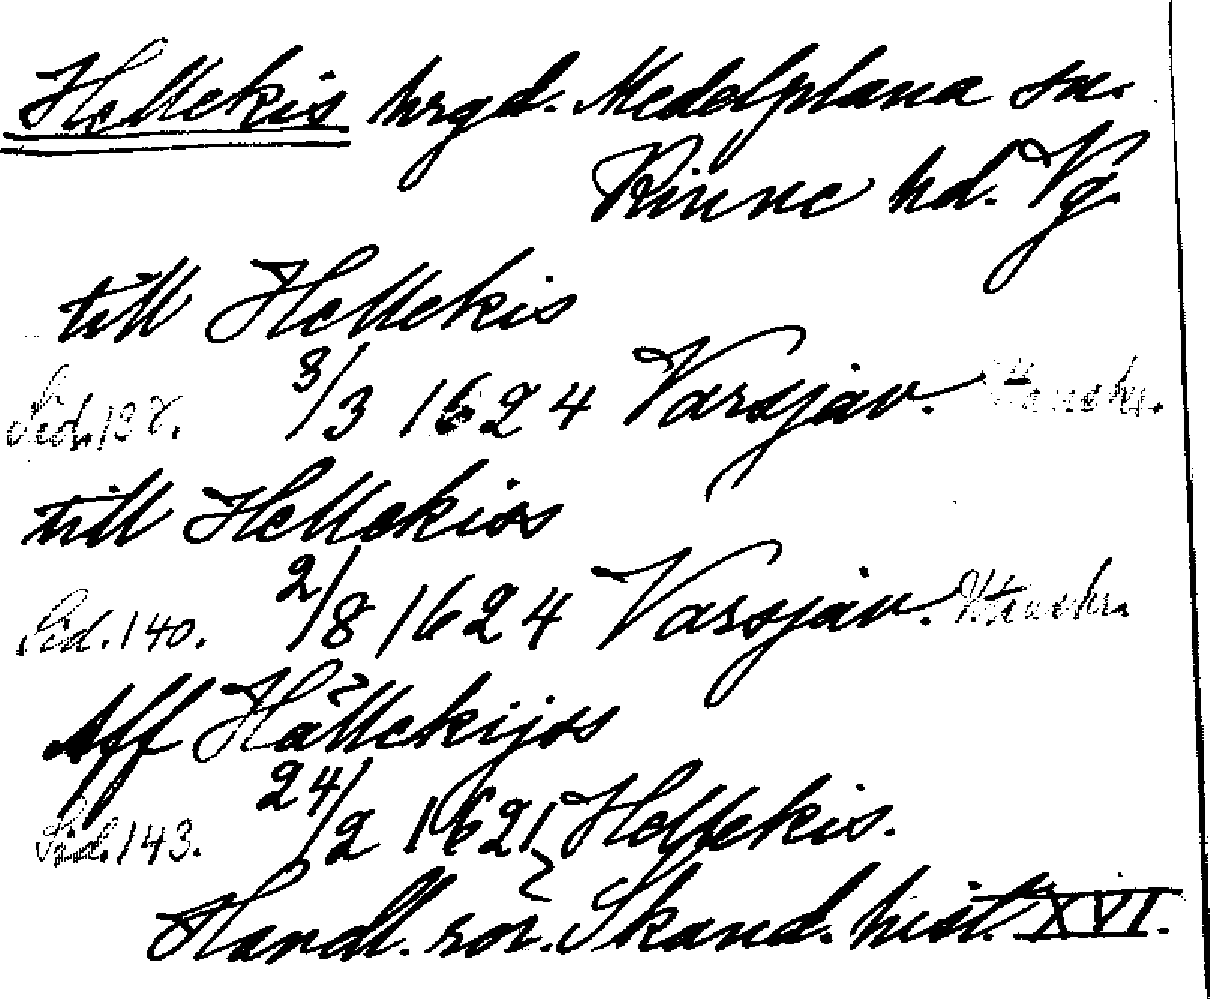 Hellekis hrgd. Medelplana sn.
Kinne hd. Vg.
till Hellekis
Sid. 138. 3/3 1624 Varsjav.
till Hellekiss
Sid. 140. 2/8 1624 Varsjav.
Aff Hällekijss
Sid. 143. 24/2 1621 Hellekis.
Handl. rör. Skand. hist. XVI.